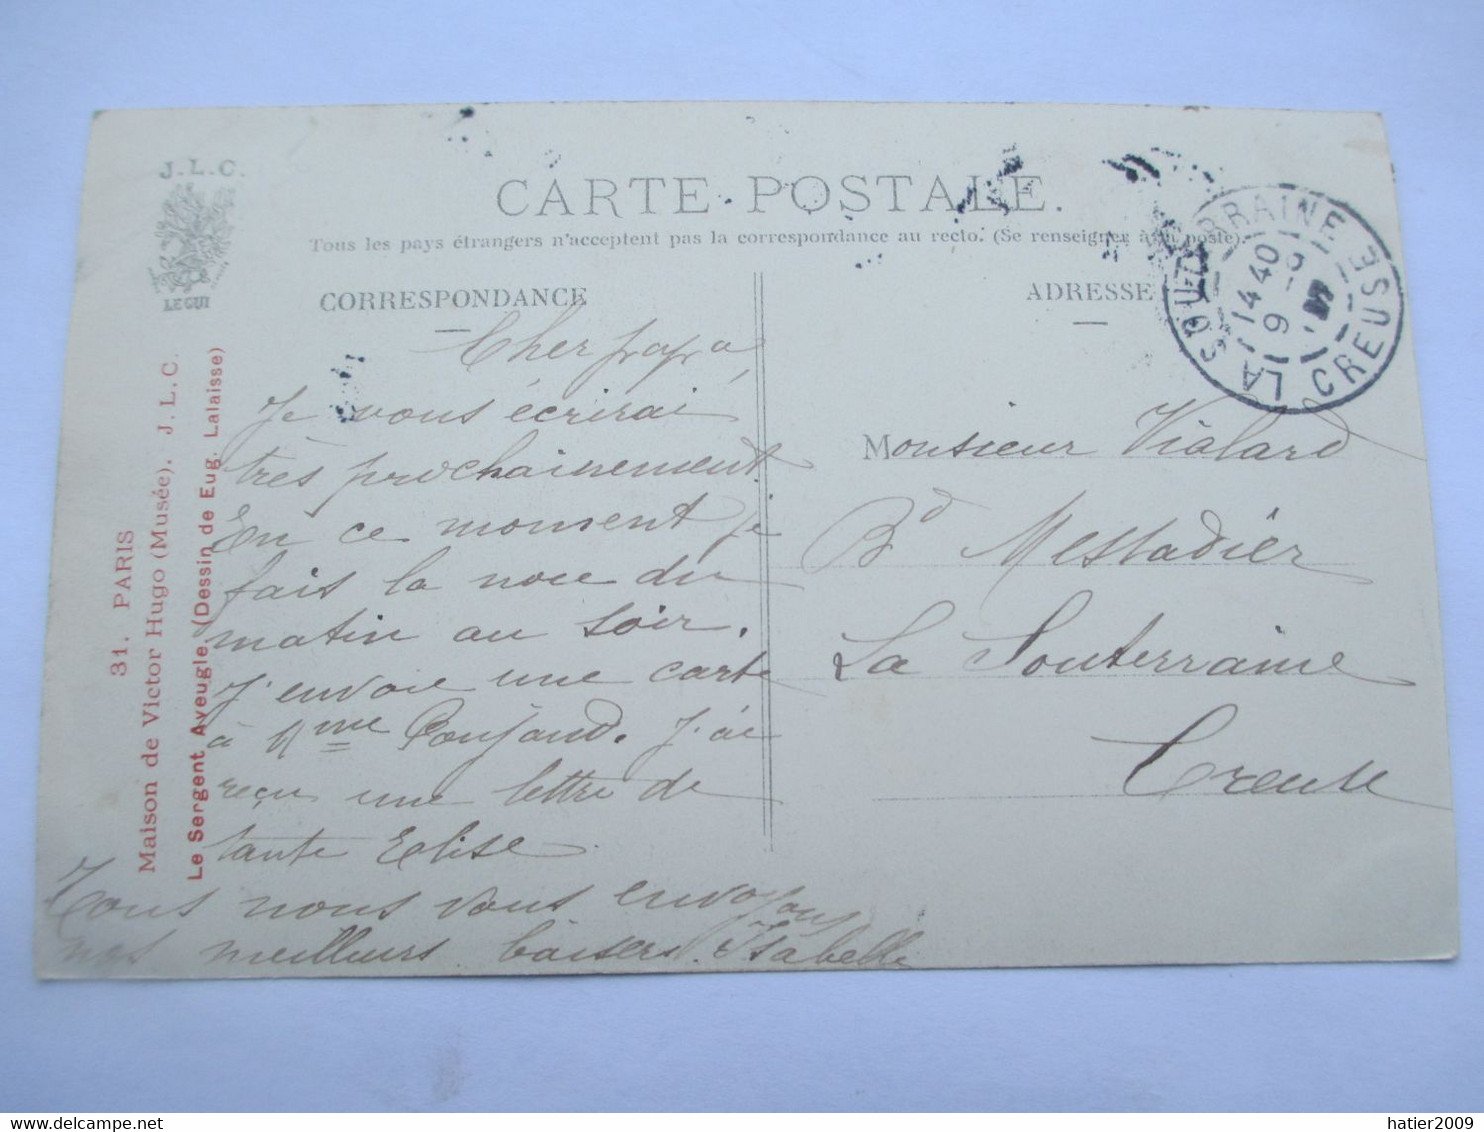 J.L.C.
LE GUI
CARTE POSTALE.
Tous les pays étrangers n'acceptent pas la correspondance au recto. (Se renseigner à la poste).
CORRESPONDANCE
ADRESSE
LA SOUTERRAINE CREUSE
14 40
9
31. PARIS
Maison de Victor Hugo (Musée). J.L.C.
Le Sergent Aveugle (Dessin de Eug. Lalaisse)
Cher papa,
Je vous écrirai
très prochainement
En ce moment je
fais la noce du
matin au soir.
J'envoie une carte
à Mme Poujaud. J'ai
reçu une lettre de
tante Elise.
Tous nous vous envoyons
nos meilleurs baisers. Isabelle
Monsieur Vialard
Bd Mestadier
La Souterraine
Creuse
hatier2009